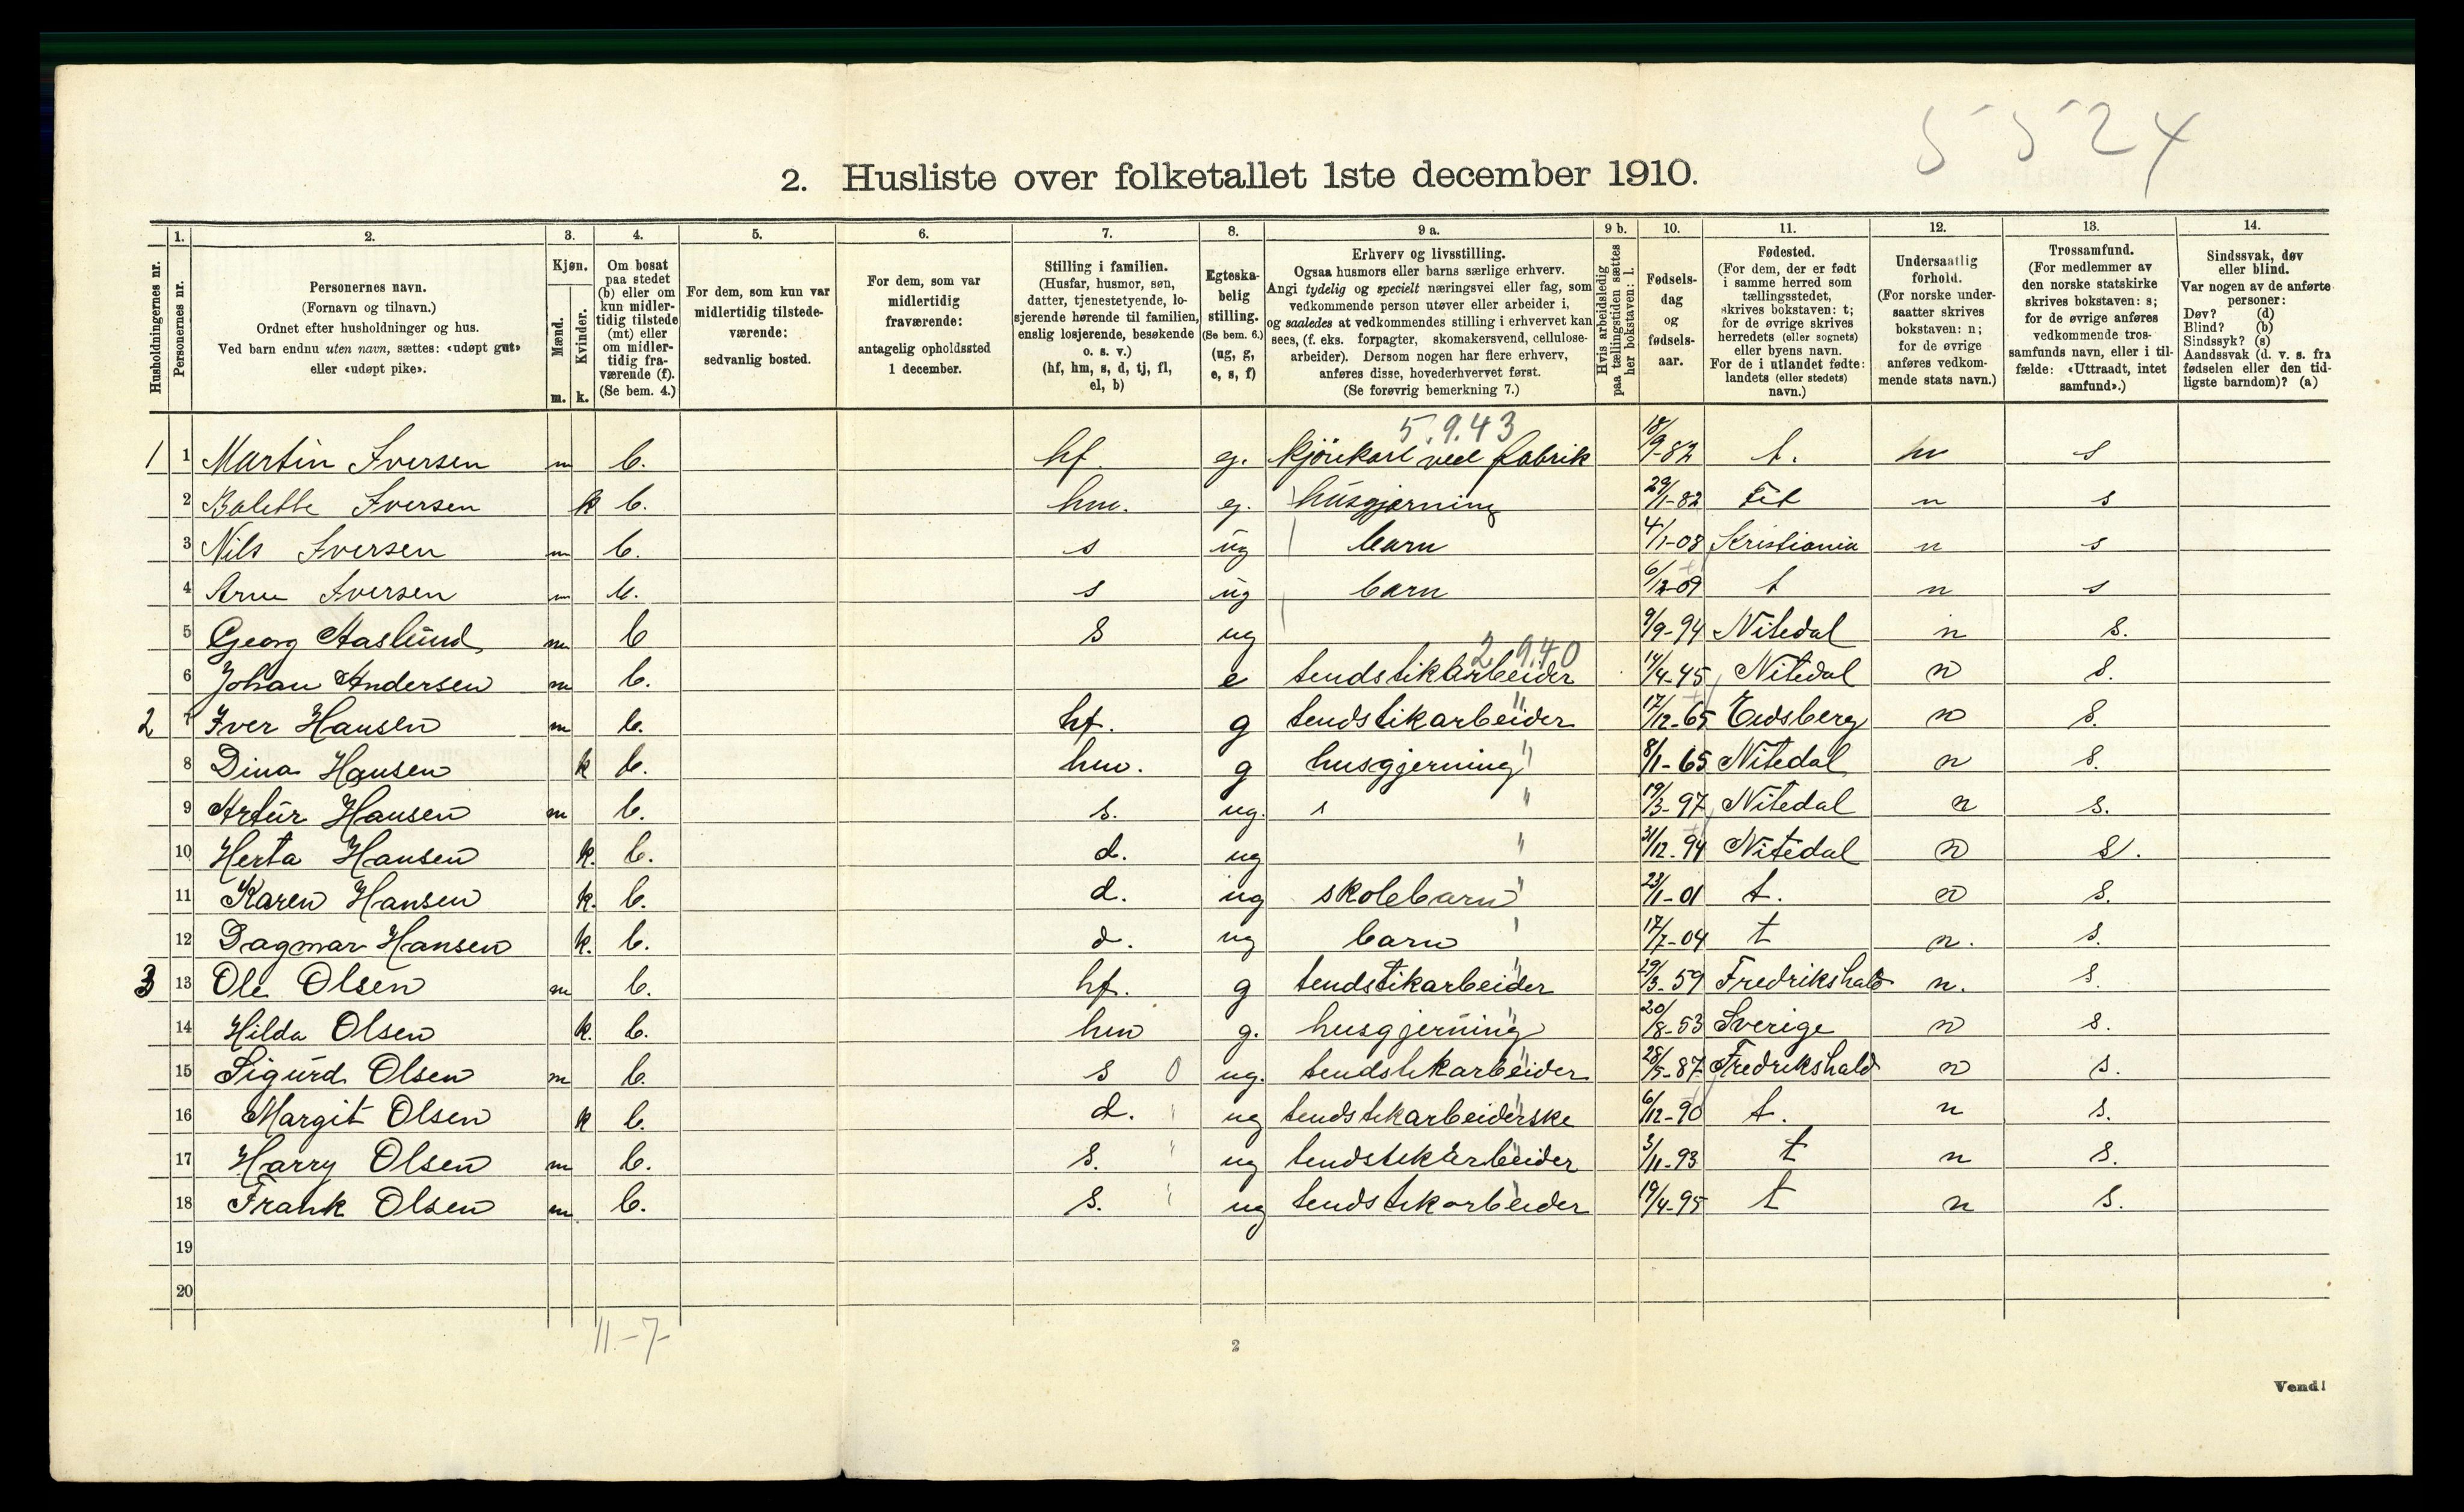 5524
2. Husliste over folketallet 1ste december 1910.
1. 2. 3. 4. 5. 6. 7. 8. 9 a. 9 b. 10. 11. 12. 13. 14.
Husholdningernes nr.
Personernes nr.
Personernes navn.
(Fornavn og tilnavn.)
Ordnet efter husholdninger og hus.
Ved barn endnu uten navn, sættes: «udøpt gut»
eller «udøpt pike».
Kjøn.
Mænd.
Kvinder.
m. k.
Om bosat
paa stedet
(b) eller om
kun midler-
tidig tilstede
(mt) eller
om midler-
tidig fra-
værende (f).
(Se bem. 4.)
For dem, som kun var
midlertidig tilstede-
værende:
sedvanlig bosted.
For dem, som var
midlertidig
fraværende:
antagelig opholdssted
1 december.
Stilling i familien.
(Husfar, husmor, søn,
datter, tjenestetyende, lo-
sjerende hørende til familien,
enslig losjerende, besøkende
o. s. v.)
(hf, hm, s, d, tj, fl,
el, b)
Egteska-
belig
stilling.
(Se bem. 6.)
(ug, g,
e, s, f)
Erhverv og livsstilling.
Ogsaa husmors eller barns særlige erhverv.
Angi tydelig og specielt næringsvei eller fag, som
vedkommende person utøver eller arbeider i,
og saaledes at vedkommendes stilling i erhvervet kan
sees, (f. eks. forpagter, skomakersvend, cellulose-
arbeider). Dersom nogen har flere erhverv,
anføres disse, hovederhvervet først.
(Se forøvrig bemerkning 7.)
Hvis arbeidsledig
paa tællingstiden sættes
her bokstaven: l.
Fødsels-
dag
og
fødsels-
aar.
Fødested.
(For dem, der er født
i samme herred som
tællingsstedet,
skrives bokstaven: t;
for de øvrige skrives
herredets (eller sognets)
eller byens navn.
For de i utlandet fødte:
landets (eller stedets)
navn.)
Undersaatlig
forhold.
(For norske under-
saatter skrives
bokstaven: n;
for de øvrige
anføres vedkom-
mende stats navn.)
Trossamfund.
(For medlemmer av
den norske statskirke
skrives bokstaven: s;
for de øvrige anføres
vedkommende tros-
samfunds navn, eller i til-
fælde: «Uttraadt, intet
samfund».)
Sindssvak, døv
eller blind.
Var nogen av de anførte
personer:
Døv? (d)
Blind? (b)
Sindssyk? (s)
Aandssvak (d. v. s. fra
fødselen eller den tid-
ligste barndom)? (a)
5.9.43
1 1 Martin Iversen m b. hf. g. kjørekarl ved fabrik 18/9-82 t. n s
2 Iversen k b. hm. g. husgjerning 29/1-82 n s
3 Nils Iversen m b. s ug barn 4/1-08 Kristiania n s
4 Arne Iversen m b. s ug barn 6/12-09 t n s
5 Georg Aaslund m b s ug 9/9-94 Nitedal n s.
2.9.40
6 Johan Andersen m b. e tendstikarbeider 14/4-45 Nitedal n s.
2 7 Iver Hansen m b. hf. g tendstikarbeider " 17/12-65 Eidsberg n s.
8 Dina Hansen k b. hm. g husgjerning " 8/1-65 Nitedal n s.
9 Artur Hansen m b. s. ug. s " 19/3-97 Nitedal n s.
10 Herta Hansen k. b. d. ug " 31/12-94 Nitedal n s.
11 Karen Hansen k. b. d. ug skolebarn " 23/1-01 t. n s.
12 Dagmar Hansen k. b. d. ug barn " 17/7-04 t n. s.
3 13 Ole Olsen m b. hf. g tendstikarbeider 29/3-59 Fredrikshald n. s.
14 Hilda Olsen k. b. hm g. husgjerning 20/8-53 Sverige n s.
15 Sigurd Olsen m b. s 0 ug. tendstikarbeider 28/5-87 Fredrikshald n s.
16 Margit Olsen k b. d. " ug tendstikarbeiderske 6/12-90 t. n s.
17 Harry Olsen m b. s. " ug tendstikarbeider 3/11-93 t n s.
18 Frank Olsen m b. s. " ug tendstikarbeider 19/4-95 t n s.
19
20
11-7-
2
Vend!